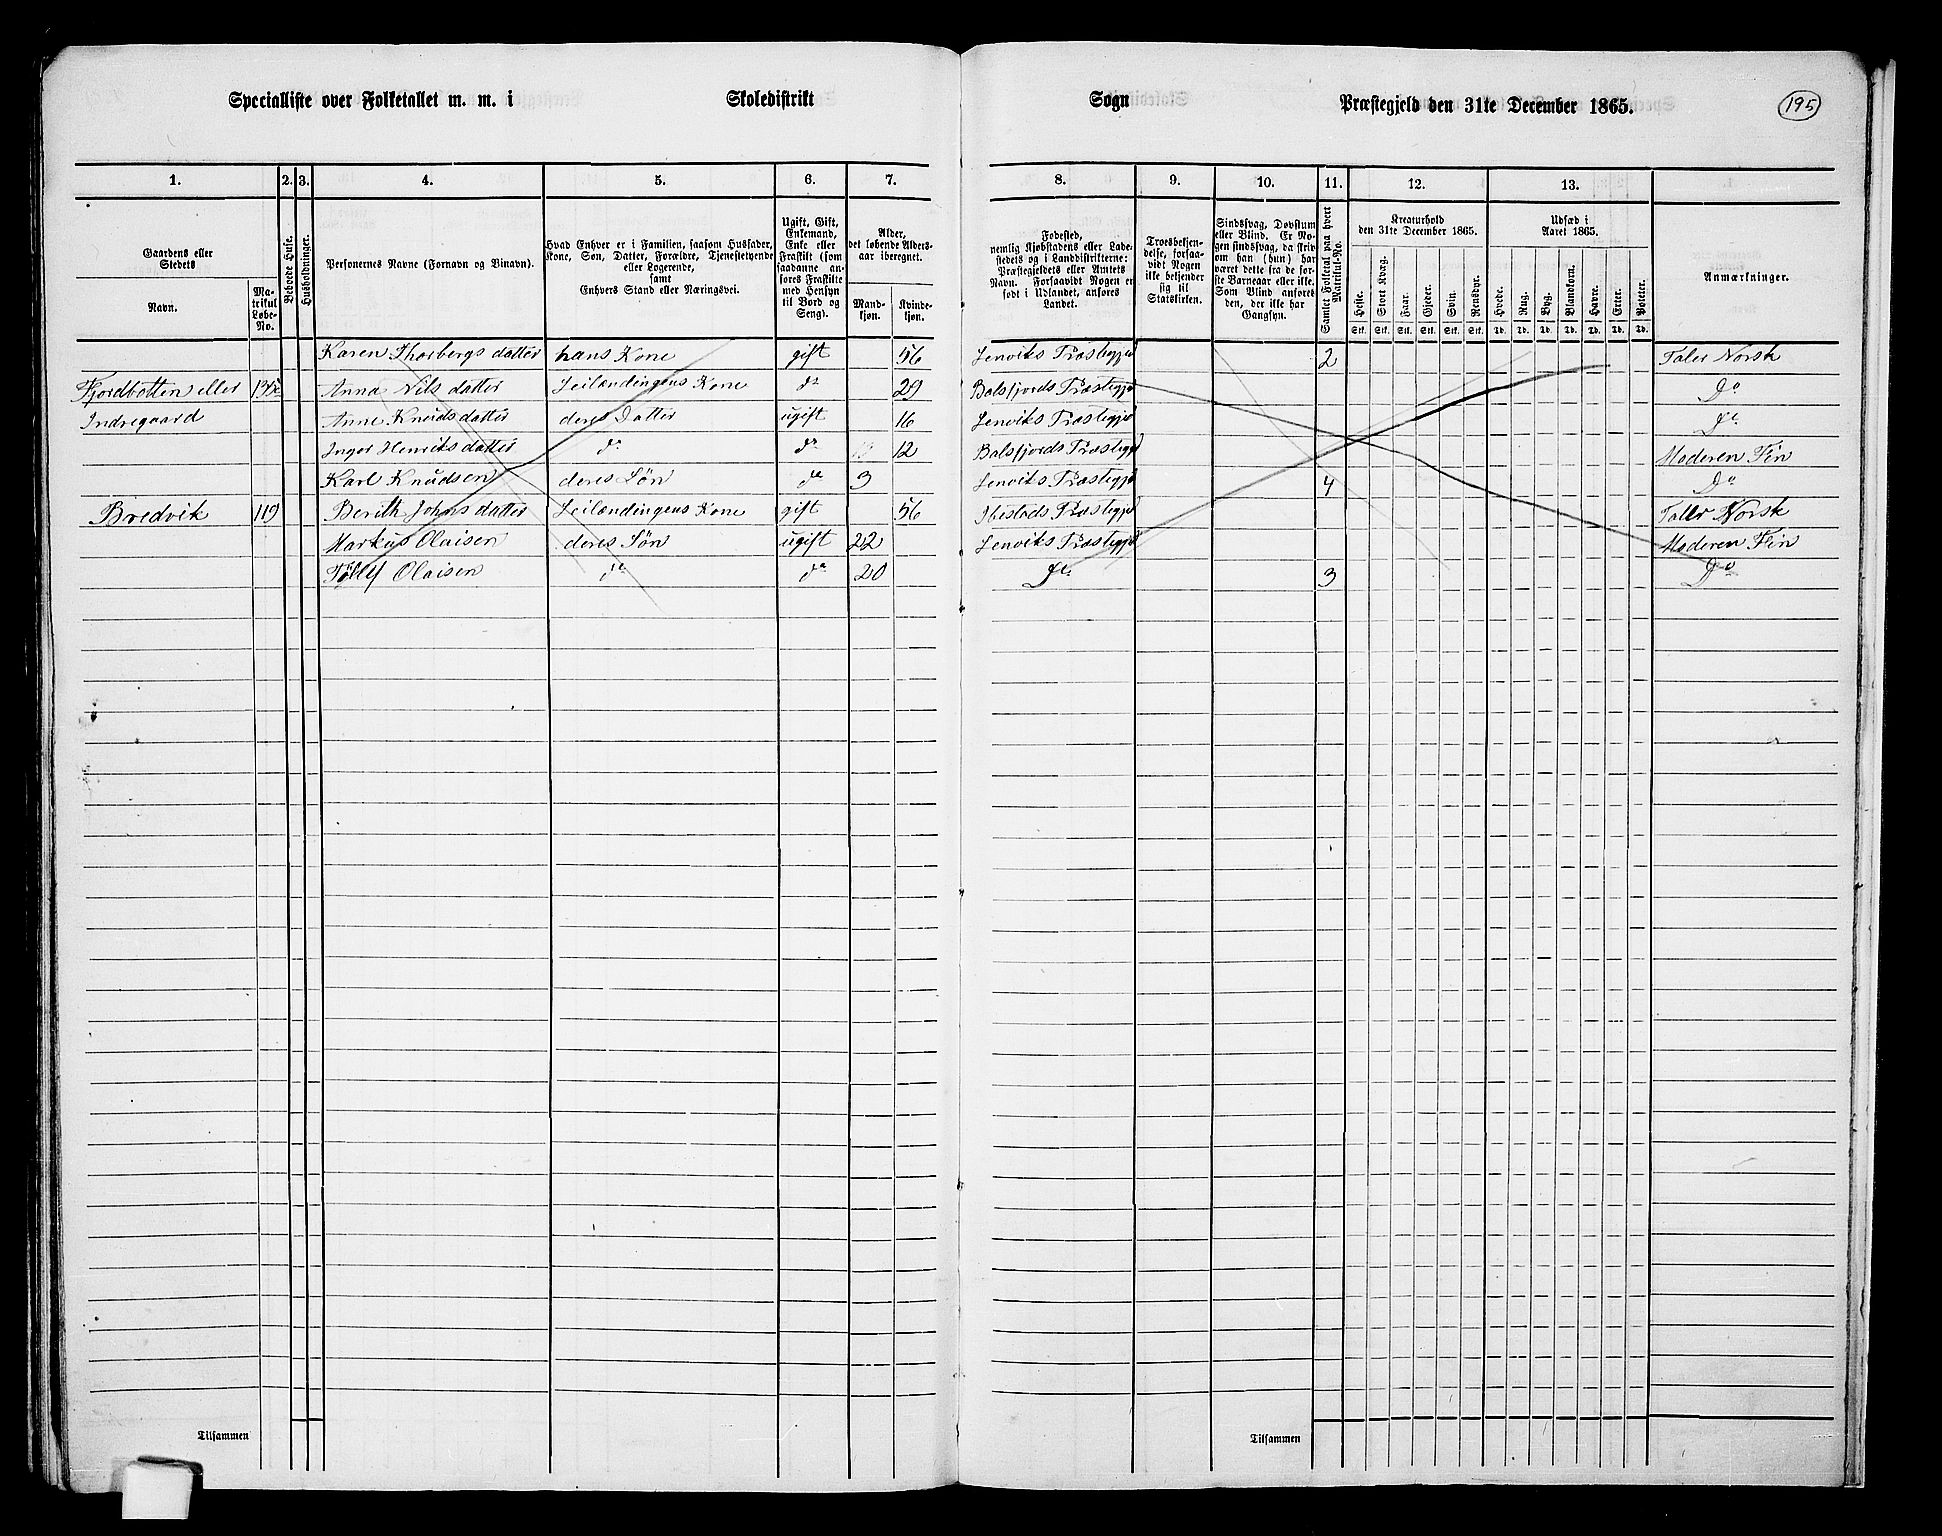 Specialliste over Folketallet m. m. i Skoledistrikt Sogn Præstegjeld den 31te December 1865. 195
1. 2. 3. 4. 5. 6. 7. 8. 9. 10. 11. 12. 13.
Gaardens eller Stedets
Navn.
Matrikul Løbe-No.
Beboede Huse.
Husholdninger.
Personernes Navne (Fornavn og Binavn).
Hvad Enhver er i Familien, saasom Husfader, Kone, Søn, Datter, Forældre, Tjenestetyende eller Logerende,
samt
Enhvers Stand eller Næringsvei.
Ugift, Gift, Enkemand, Enke eller Fraskilt (som saadanne anføres Fraskilte med Hensyn til Bord og Seng).
Alder, det løbende Aldersaar iberegnet.
Mandkjøn.
Kvindekjøn.
Fødested,
nemlig Kjøbstadens eller Ladestedets og i Landdistrikterne: Præstegjeldets eller Amtets Navn. Forsaavidt Nogen er født i Udlandet, anføres Landet.
Troesbekjendelse, forsaavidt Nogen ikke bekjender sig til Statskirken.
Sindssvag, Døvstum eller Blind. Er Nogen sindssvag, da skriv om han (hun) har været dette fra de første Barneaar eller ikke. Som Blind anføres den, der ikke har Gangsyn.
Samlet Folketal paa hvert Matrikul-No.
Kreaturhold
den 31te December 1865.
Heste. Stort Kvæg. Faar. Gjeder. Svin. Rensdyr.
Stk. Stk. Stk. Stk. Stk. Stk.
Udsæd i
Aaret 1865.
Hvede. Rug. Byg. Blandkorn. Havre. Erter. Poteter.
Td. Td. Td. Td. Td. Td. Td.
Anmærkninger.
Karen Thorbergsdatter hans Kone gift 56 Lenviks Præstegjd 2 Taler Norsk
Fjordbotten eller Anna Nilsdatter Leilændingens Kone do 29 Balsfjords Præstegjd Do
Indregaard Anne Knudsdatter deres Datter ugift 16 Lenviks Præstegjd Do
Inger Henriksdatter do do 12 Balsfjords Præstegjd Moderen Fin
Karl Knudsen deres Søn do 3 Lenviks Præstegjd 4 Do
Bredvik 119 Berith Johnsdatter Leilændingens Kone gift 56 Ibestads Præstegjd Taler Norsk
Markus Olaisen deres Søn ugift 22 Lenviks Præstegjd Moderen Fin
Tollef Olaisen do do 20 Do 3 Do
Tilsammen Tilsammen